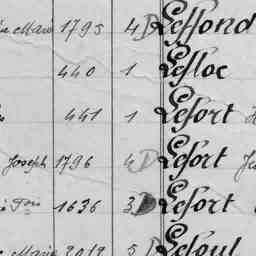 Marie 1795 4 D Leffond
440 1 Lefloc
441 1 Lefort
Joseph 1796 4 D Lefort
1636 3 D Lefort
Marie 2012 5 D Lefoul